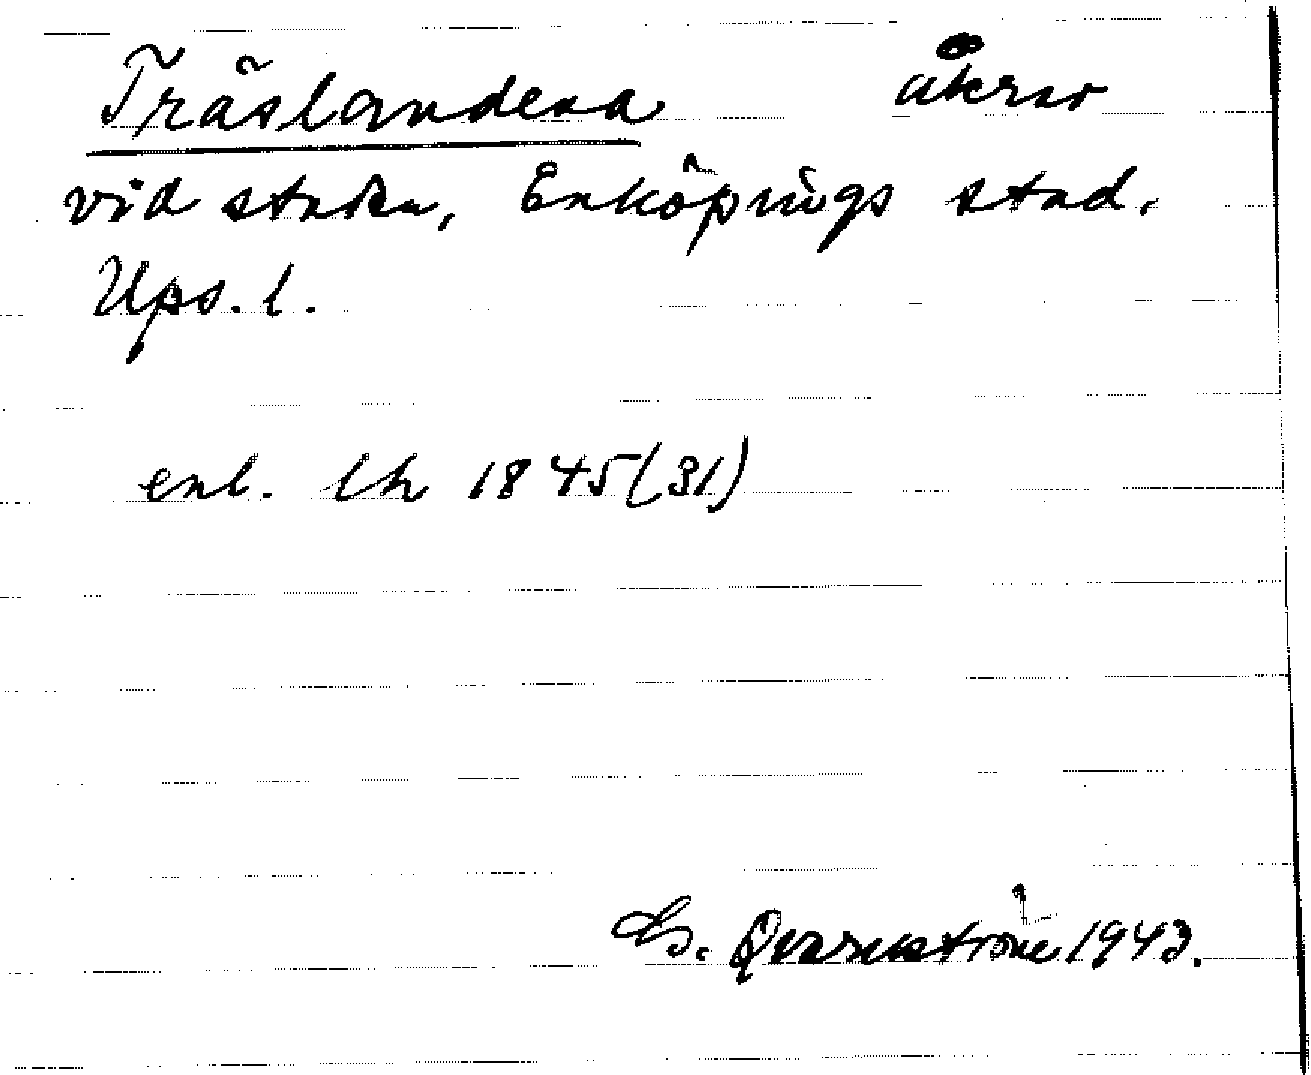 Träslandena åkrar
vid staden, Enköpings stad.
Ups. l.
enl. lh 1845 (31)
G. Qvarnström 1943.